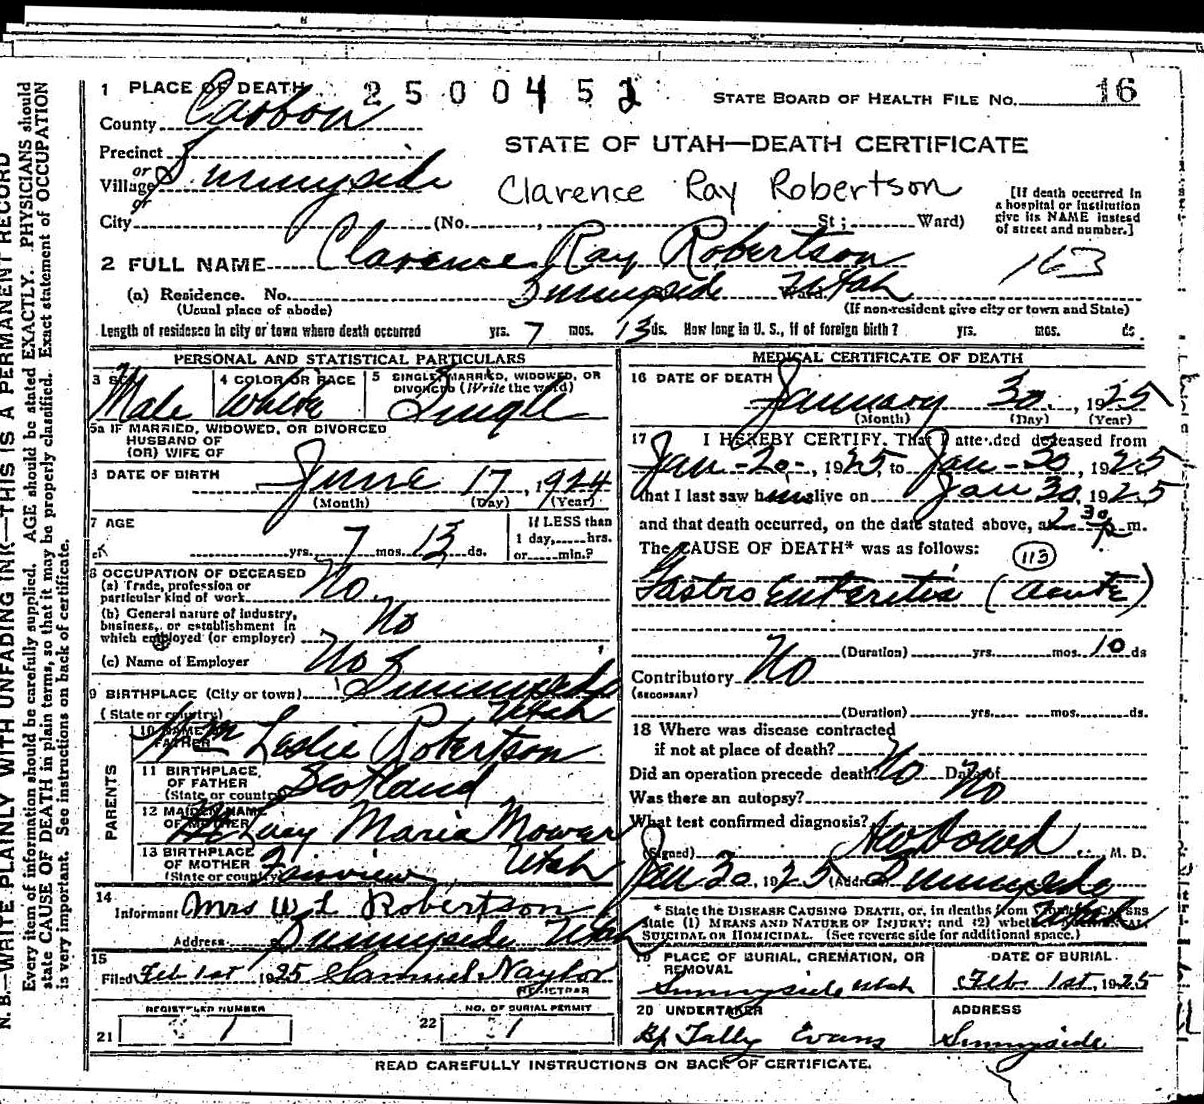 1 PLACE OF DEATH 2500452 STATE BOARD OF HEALTH FILE NO. 16
County Carbon
STATE OF UTAH—DEATH CERTIFICATE
Precinct
or
Village Sunnyside
or
Clarence Ray Robertson
[If death occurred in
a hospital or institution
give its NAME instead
of street and number.]
City (No. , St; Ward)
2 FULL NAME Clarence Ray Robertson 163
(a) Residence. No. Sunnyside Utah
(Usual place of abode) (If non-resident give city or town and State)
Length of residence in city or town where death occurred yrs. 7 mos. 13 ds. How long in U. S., if of foreign birth? yrs. mos. ds
PERSONAL AND STATISTICAL PARTICULARS
3 SEX Male
4 COLOR OR RACE White
5 SINGLE, MARRIED, WIDOWED, OR
DIVORCED (Write the word) Single
5a IF MARRIED, WIDOWED, OR DIVORCED
HUSBAND OF
(OR) WIFE OF
6 DATE OF BIRTH June 17, 1924
(Month) (Day) (Year)
7 AGE yrs. 7 mos. 13 ds.
If LESS than
1 day, hrs.
or min.?
8 OCCUPATION OF DECEASED
(a) Trade, profession or
particular kind of work No
(b) General nature of industry,
business, or establishment in
which employed (or employer) No
(c) Name of Employer No
9 BIRTHPLACE (City or town) Sunnyside
(State or country) Utah
PARENTS
10 NAME OF
FATHER Wm Leslie Robertson
11 BIRTHPLACE
OF FATHER
(State or country) Scotland
12 MAIDEN NAME
OF MOTHER Lucy Maria Mower
13 BIRTHPLACE
OF MOTHER
(State or country) Fairview Utah
14
Informant Mrs W L Robertson
Address Sunnyside Utah
15
Filed Feb 1st 1925 Samuel Naylor
REGISTRAR
REGISTERED NUMBER
21 1
NO. OF BURIAL PERMIT
22 1
MEDICAL CERTIFICATE OF DEATH
16 DATE OF DEATH January 30, 1925
(Month) (Day) (Year)
17 I HEREBY CERTIFY, That I attended deceased from
Jan-20-, 1925 to Jan-30, 1925
that I last saw him alive on Jan 30, 1925
and that death occurred, on the date stated above, at 2 30 p m.
The CAUSE OF DEATH* was as follows: 113
Gastro enteritis (acute)
(Duration) yrs. mos. 10 ds
Contributory No
(SECONDARY)
(Duration) yrs. mos. ds.
18 Where was disease contracted
if not at place of death? No
Did an operation precede death? No Date of No
Was there an autopsy?
What test confirmed diagnosis?
(Signed) Dowd M. D.
Jan 30, 1925 (Address) Sunnyside
Utah
* State the DISEASE CAUSING DEATH, or, in deaths from VIOLENT CAUSES
state (1) MEANS AND NATURE OF INJURY; and (2) whether ACCIDENTAL,
SUICIDAL OR HOMICIDAL. (See reverse side for additional space.)
19 PLACE OF BURIAL, CREMATION, OR
REMOVAL
Sunnyside Utah
DATE OF BURIAL
Feb. 1st, 1925
20 UNDERTAKER
Bp Tally Evans
ADDRESS
Sunnyside
READ CAREFULLY INSTRUCTIONS ON BACK OF CERTIFICATE.
N. B.—WRITE PLAINLY WITH UNFADING INK—THIS IS A PERMANENT RECORD
Every item of information should be carefully supplied. AGE should be stated EXACTLY. PHYSICIANS should
state CAUSE OF DEATH in plain terms, so that it may be properly classified. Exact statement of OCCUPATION
is very important. See instructions on back of certificate.